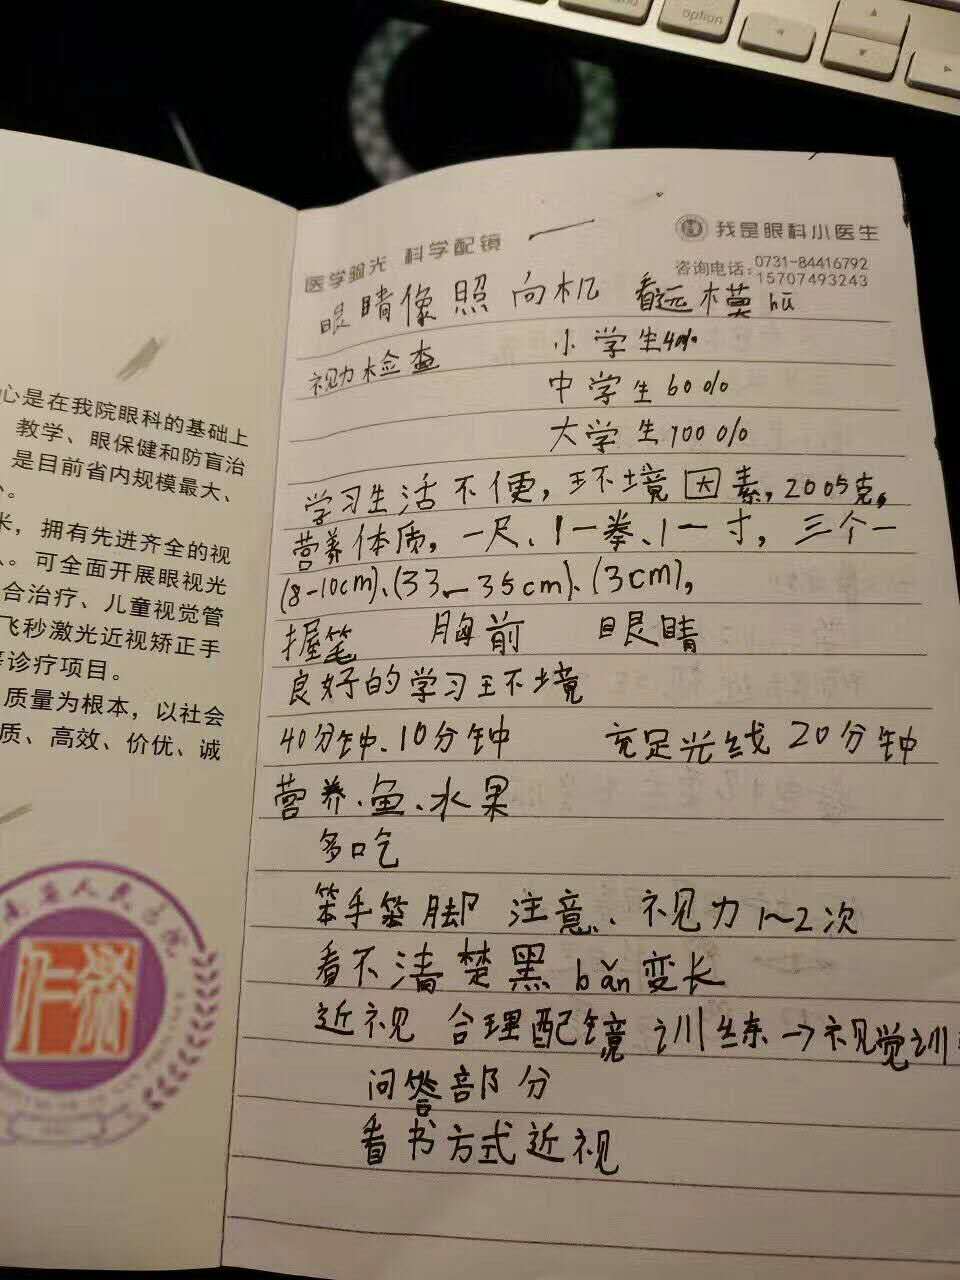 option
心是在我院眼科的基础上
教学、眼保健和防盲治
是目前省内规模最大、
米，拥有先进齐全的视
。可全面开展眼视光
合治疗、儿童视觉管
飞秒激光近视矫正手
等诊疗项目。
质量为根本，以社会
质、高效、价优、诚
人民
医学验光 科学配镜
我是眼科小医生
咨询电话:0731-84416792
15707493243
眼睛像照向机 看远模hū
视力检查 小学生40%
中学生60%
大学生100%
学习生活不便，环境因素，2005克，
营养体质，一尺、1一拳、1一寸，三个一
(8-10cm)、(33—35cm)、(3cm)，
握笔 胸前 眼睛
良好的学习环境
40分钟、10分钟 充足光线20分钟
营养、鱼、水果
多口吃
笨手笨脚 注意、视力1~2次
看不清楚黑bǎn变长
近视 合理配镜 训练→视觉训
问答部分
看书方式近视